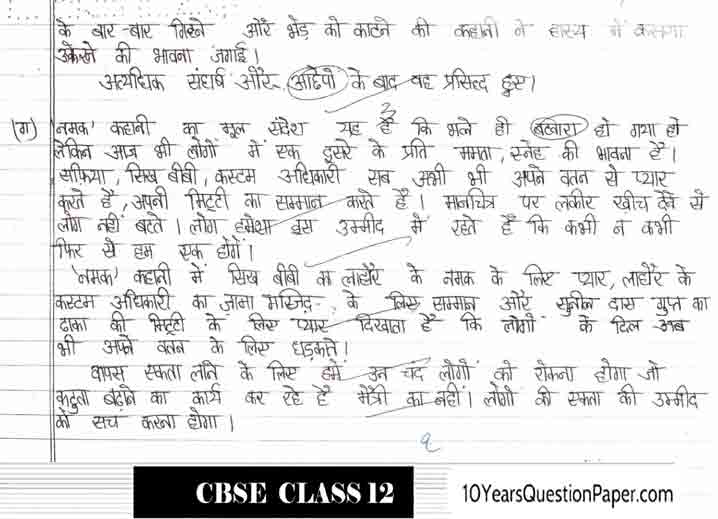 के बार-बार गिरने और भेड़ को काटने की कहानी ने हास्य में करूणा
उकेरने की भावना जगाई।
अत्यधिक संघर्ष और के बाद वह प्रसिद्ध हुए।
3
(ग) 'नमक' कहानी का मूल संदेश यह है कि भले ही बटवारा हो गया हो
लेकिन आज भी लोगों में एक दुसरे के प्रति ममता, स्नेह की भावना है।
सफिया, सिख बीबी, कस्टम अधिकारी सब अभी भी अपने वतन से प्यार
करते हैं, अपनी मिट्टी का सम्मान करते हैं। मानचित्र पर लकीर खींच देने से
लोग नहीं बटते। लोग हमेशा इस उम्मीद में रहते हैं कि कभी न कभी
फिर से हम एक होगें।
'नमक' कहानी में सिख बीबी का लाहौर के नमक के लिए प्यार, लाहौर के
कस्टम अधिकारी का जामा मस्जिद के लिए सम्मान और सुनील दास गुप्त का
ढाका की मिट्टी के लिए प्यार दिखाता है कि लोगों के दिल अब
भी अपने वतन के लिए धड़कते।
वापस एकता लाने के लिए हमें उन चंद लोगों को रोकना होगा जो
कटुता बढ़ाने का कार्य कर रहे हैं मैत्री का नहीं। लोगों की एकता की उम्मीद
को सच करना होगा।
CBSE CLASS 12
10YearsQuestionPaper.com